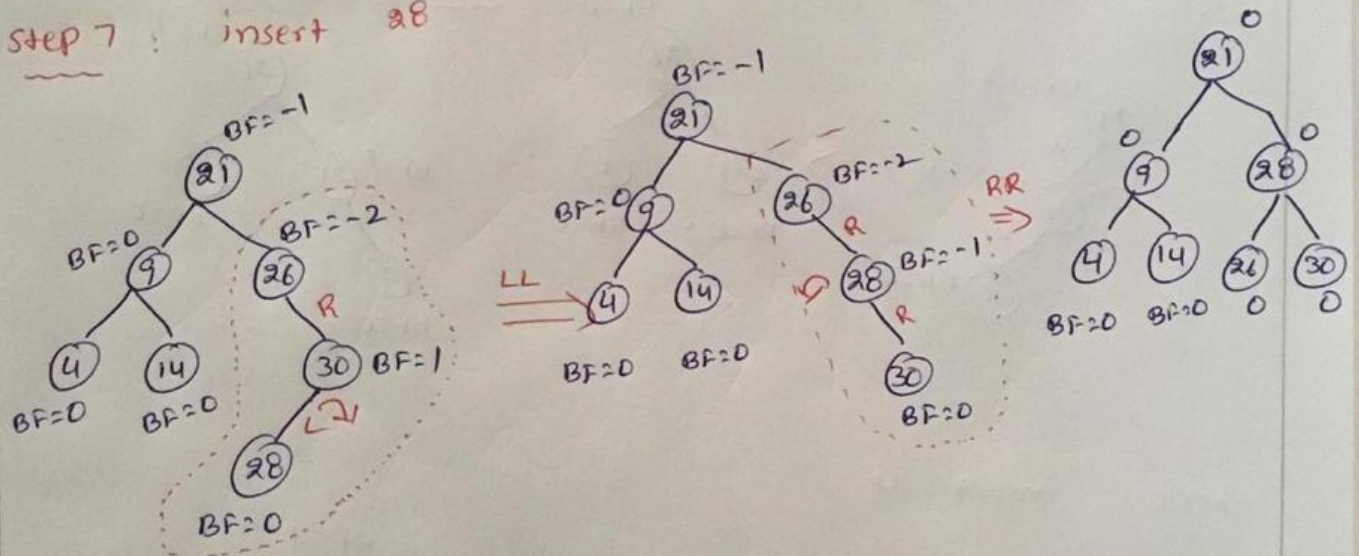 step 7 : insert 28
BF=-1
21
BF=0
9
BF=-2
26
R
4
BF=0
14
BF=0
30
BF=1
28
BF=0
LL
BF=-1
21
BF=0
9
BF=-2
26
R
4
BF=0
14
BF=0
28
BF=-1
R
30
BF=0
RR
0
21
0
9
0
28
4
14
26
30
BF=0
BF=0
0
0